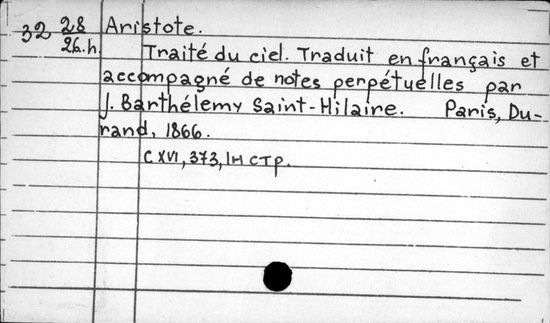 32 28 Aristote.
26.h. Traité du ciel. Traduit en français et
accompagné de notes perpétuelles par
J. Barthélemy Saint-Hilaire. Paris, Du-
rand, 1866.
C XVI, 373, IН стр.